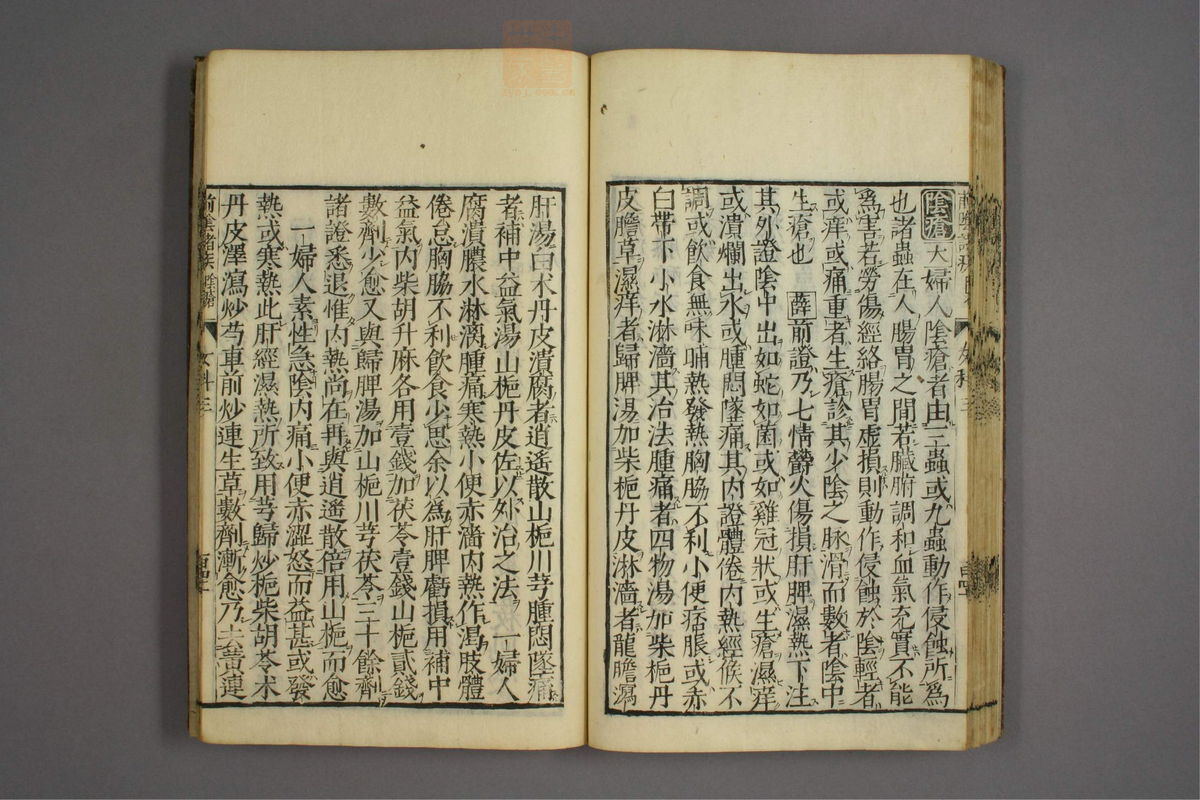 陰瘡 大婦人陰瘡者由三蟲或九蟲動作侵蝕所爲
也諸蟲在人腸胃之間若臟腑調和血氣充實不能
爲害若勞傷經絡腸胃虚損則動作侵蝕於陰輕者
或痒或痛重者生瘡診其少陰之脉滑而數者陰中
生瘡也 薛 前證乃七情鬱火傷損肝脾濕熱下注
其外證陰中出如蛇如菌或如雞冠狀或生瘡濕痒
或潰爛出水或腫悶墜痛其内證體倦内熱經候不
調或飲食無味晡熱發熱胸脇不利小便痞脹或赤
白帶下小水淋濇其治法腫痛者四物湯加柴梔丹
皮膽草濕痒者歸脾湯加柴梔丹皮淋濇者龍膽瀉
肝湯白术丹皮潰腐者逍遙散山梔川芎腫悶墜痛
者補中益氣湯山梔丹皮佐以外治之法 一婦人
腐潰膿水淋漓腫痛寒熱小便赤濇内熱作渴肢體
倦怠胸脇不利飲食少思余以爲肝脾虧損用補中
益氣内柴胡升麻各用壹錢加茯苓壹錢山梔貳錢
數劑少愈又與歸脾湯加山梔川芎茯苓三十餘劑
諸證悉退惟内熱尚在再與逍遙散倍用山梔而愈
一婦人素性急陰内痛小便赤澀怒而益甚或發
熱或寒熱此肝經濕熱所致用芎歸炒梔柴胡苓术
丹皮澤瀉炒芍車前炒連生草數劑漸愈乃去黄連
前陰諸疾
女科三